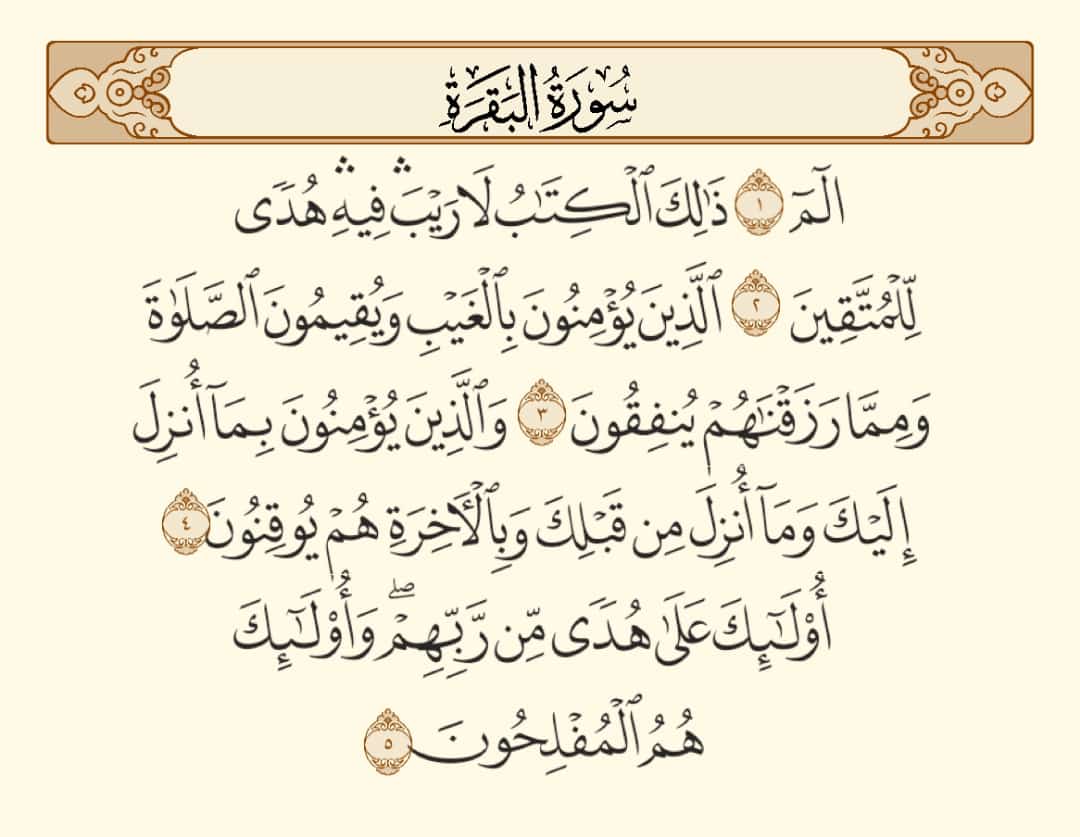 سُورَةُ البَقَرَةِ
الٓمٓ ١ ذَٰلِكَ ٱلْكِتَٰبُ لَا رَيْبَ ۛ فِيهِ ۛ هُدًى
لِّلْمُتَّقِينَ ٢ ٱلَّذِينَ يُؤْمِنُونَ بِٱلْغَيْبِ وَيُقِيمُونَ ٱلصَّلَوٰةَ
وَمِمَّا رَزَقْنَٰهُمْ يُنفِقُونَ ٣ وَٱلَّذِينَ يُؤْمِنُونَ بِمَآ أُنزِلَ
إِلَيْكَ وَمَآ أُنزِلَ مِن قَبْلِكَ وَبِٱلْأٓخِرَةِ هُمْ يُوقِنُونَ ٤
أُوْلَٰٓئِكَ عَلَىٰ هُدًى مِّن رَّبِّهِمْ ۖ وَأُوْلَٰٓئِكَ
هُمُ ٱلْمُفْلِحُونَ ٥